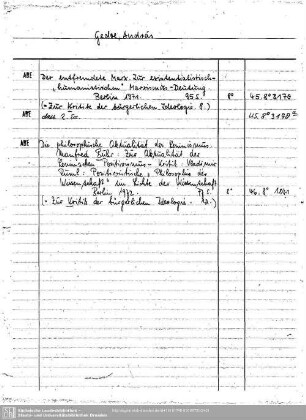 Gedoe, András
ABE Der entfremdete Marx. Zur existentialistisch-
"humanistischen" Marxismus-Deutung
Berlin 1971. 95 S. 8° 45. 8° 3170
(= Zur Kritik der bürgerlichen Ideologie. 8.)
ABE dass. 2. Ex. 45. 8° 3170
ABE Die philosophische Aktualität des Leninismus.
Manfred Buhr: Zur Aktualität der
Leninschen Positivismus-Kritik. Vladimir
Ruml: Positivistische "Philosophie der
Wissenschaft" im Lichte der Wissenschaft
Berlin 1972. 8° 46. 8° 1041
(= Zur Kritik der bürgerlichen Ideologie. 12.)
Sächsische Landesbibliothek -
Staats- und Universitätsbibliothek Dresden